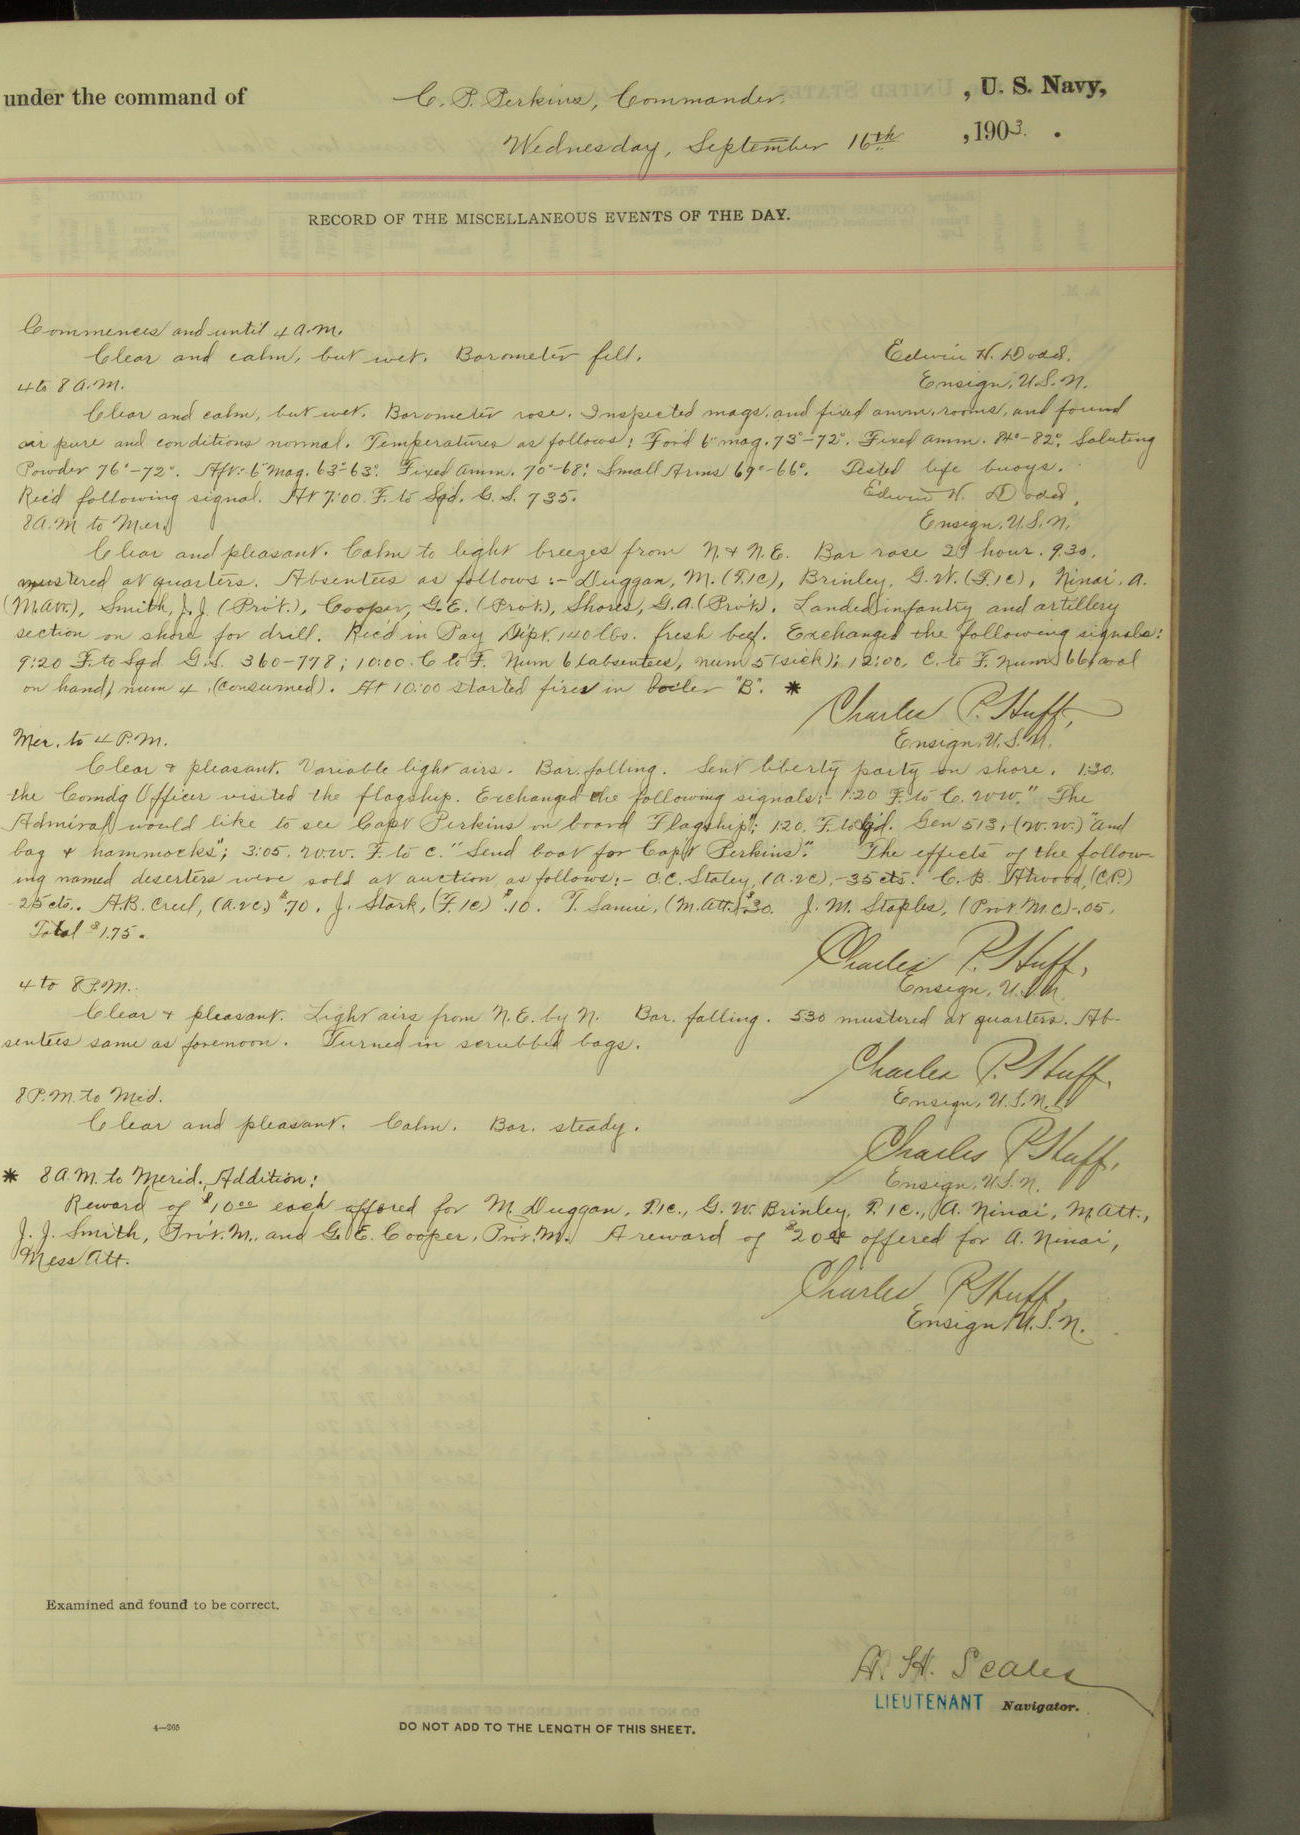 under the command of C. P. Perkins, Commander, , U. S. Navy,
Wednesday, September 16th , 1903.
RECORD OF THE MISCELLANEOUS EVENTS OF THE DAY.
Commences and until 4 A.M.
Clear and calm, but wet. Barometer fell. Edwin H. Dodd.
4 to 8 A.M. Ensign, U.S.N.
Clear and calm, but wet. Barometer rose. Inspected mags. and fixed amm. rooms, and found
air pure and conditions normal. Temperatures as follows: For'd 6" mag. 73°-72°. Fixed amm. 84°-82°. Saluting
Powder 76°-72°. Aft: 6" mag. 63°-63°. Fixed amm. 70°-68°. Small Arms 69°-66°. Tested life buoys.
Rec'd following signal. At 7:00 F. to Sqd. G. S. 735. Edwin H. Dodd,
8 A.M to Mer. Ensign, U.S.N.
Clear and pleasant. Calm to light breezes from N. & N.E. Bar rose 2d hour. 9.30.
mustered at quarters. Absentees as follows:- Duggan, M. (F.1c), Brinley, G.W. (F.1c), Ninai, A.
(M.Att.), Smith, J.J. (Prvt.), Cooper, G.E. (Prvt.), Shores, G.A. (Prvt.). Landed infantry and artillery
section on shore for drill. Rec'd in Pay Dept. 140 lbs. fresh beef. Exchanged the following signals:
9:20 F. to Sqd G.S. 360-778; 10:00. C to F. Num 6 (absentees, num 5 (sick); 12:00. C. to F. Num 66 (coal
on hand) num 4 (consumed). At 10:00 started fires in boiler "B". * Charles P. Huff,
Mer. to 4 P.M. Ensign, U.S.N.
Clear & pleasant. Variable light airs. Bar. falling. Sent liberty party on shore. 1:30.
the Comdg Officer visited the flagship. Exchanged the following signals:- 1:20 F. to C. W.W. "The
Admiral would like to see Capt Perkins on board Flagship"; 1:20. F. to Sqd. Gen 513, (W.W.) "and
bag & hammocks"; 3:05. W.W. F. to C. "Send boat for Capt Perkins." The effects of the follow-
ing named deserters were sold at auction as follows:- O.C. Staley, (A.2C), -35 cts. C. B. Atwood, (C.P.)
-25 cts. A.B. Creel, (A.2C.) $.70. J. Stark, (F.1C) $.10. T. Sanui, (M.Att.) $.30. J. M. Staples, (Prvt. M.C) -.05.
Total $1.75. Charles P. Huff,
4 to 8 P.M. Ensign, U.S.N.
Clear & pleasant. Light airs from N.E. by N. Bar. falling. 5:30 mustered at quarters. Ab-
sentees same as forenoon. Turned in scrubbed bags. Charles P. Huff,
8 P.M. to Mid. Ensign, U.S.N.
Clear and pleasant. Calm. Bar. steady. Charles P. Huff,
* 8 A.M. to Merid., Addition: Ensign, U.S.N.
Reward of $10.00 each offered for M. Duggan, F.1c., G. W. Brinley, F.1c., A. Ninai, M.Att.,
J. J. Smith, Prvt. M., and G. E. Cooper, Prvt. M. A reward of $20.00 offered for A. Ninai,
Mess Att. Charles P. Huff,
Ensign, U.S.N.
Examined and found to be correct.
A. H. Scales
LIEUTENANT Navigator.
4—265
DO NOT ADD TO THE LENGTH OF THIS SHEET.